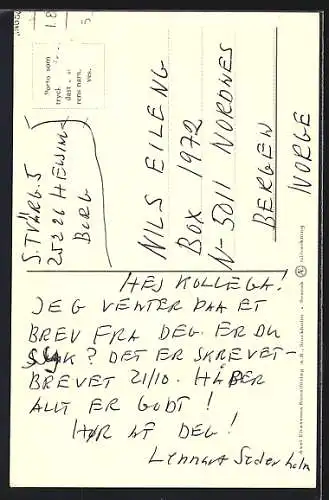 Porto som
tryck-
rens nam.
ves.
S. TVÄRG. 5
252 26 HELSING
BORG
NILS EILENG
BOX 1972
N-5011 NORDNES
BERGEN
NORGE
HEJ KOLLEGA!
JEG VENTER PAA ET
BREV FRA DEG. ER DU
SYK? DET ER SKREVET-
BREVET 21/10. HÅBER
ALT ER GODT!
HØR AF DEG!
Lennart Söderholm
Axel Eliassons Konstförlag A.-B., Stockholm • Svensk